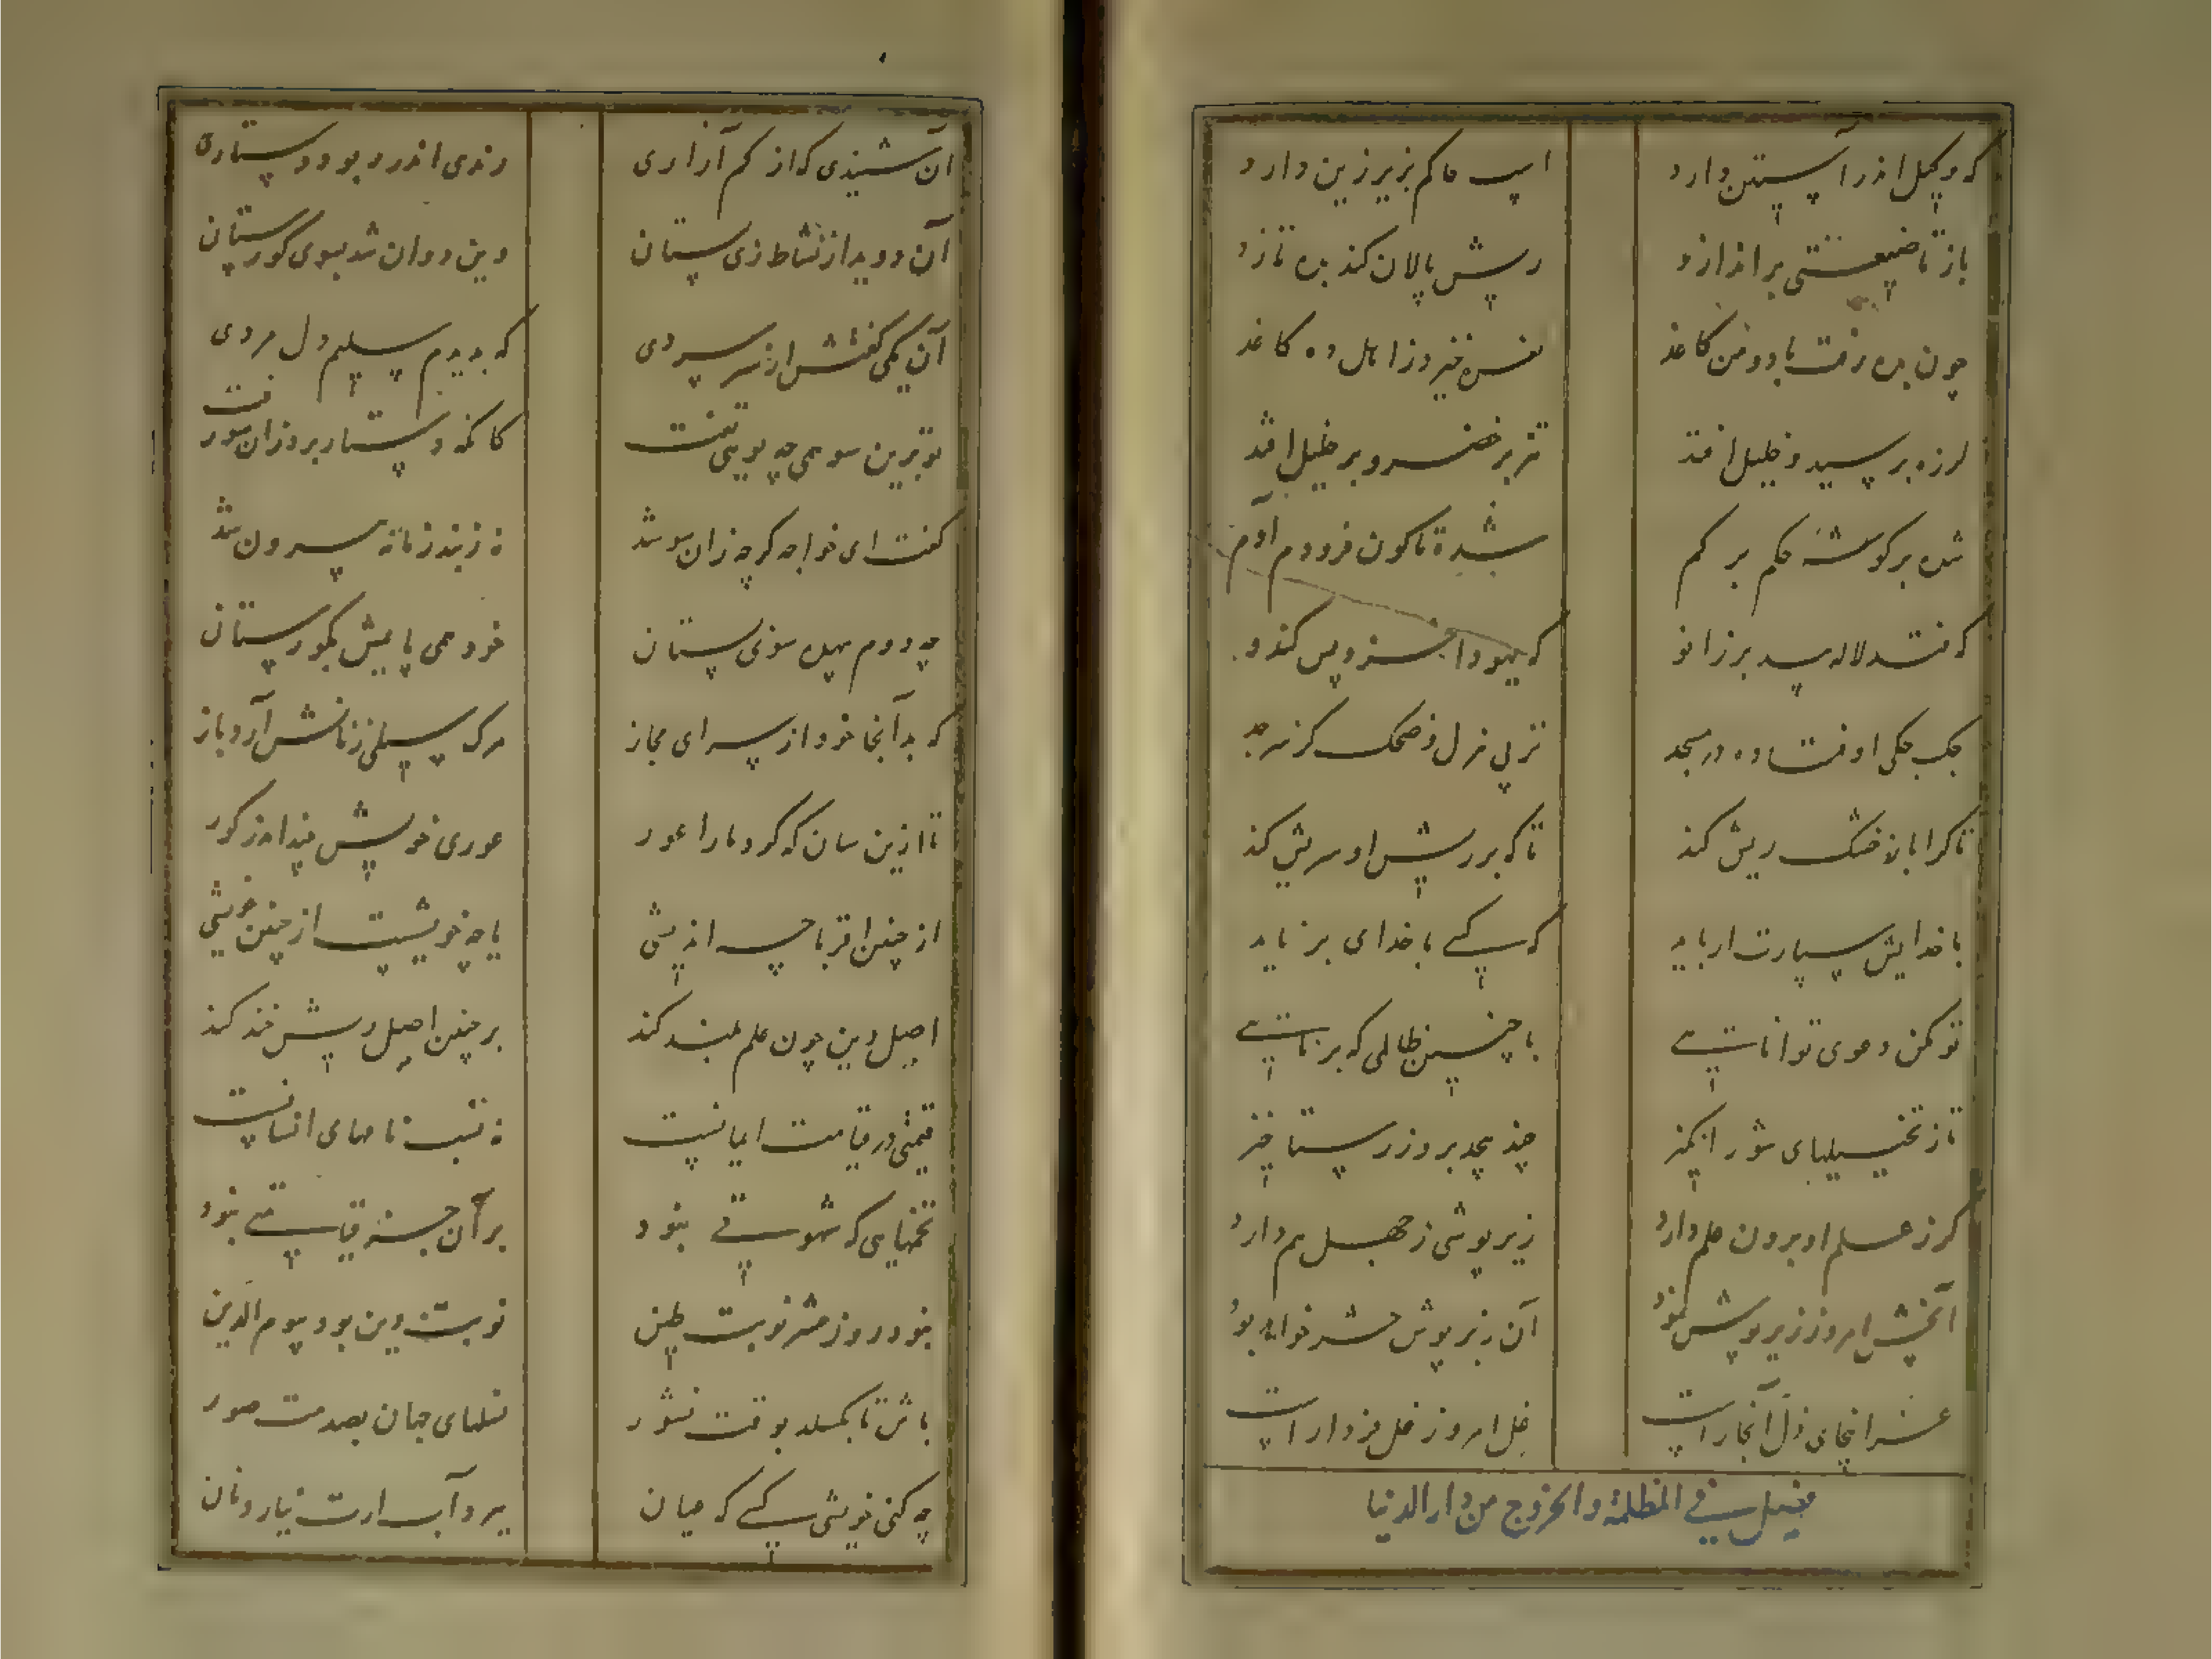 که وکیل اندر آستین دارد اسب حاکم بزیر زین دارد
باز تا ضیعتی براندازد ریش پالان کند بده تازد
چون بده رفت با دو من کاغذ نفس خیزد ز اهل ده کاغذ
لرزه بر سید و خلیل افتد تیز بر خضر و بر خلیل افتد
شده بر گوشه حکم بر کم شده تا کون فرو دم آدم
که لاله سد بر زانو که یهودا پس کند و
جک جکی اوفتاده در مسجد نز پی هزل و ضحک کز سر جد
تا کرا بانه خشک ریش کند تا که بر ریش او سریش کند
با خدایش سپارت ار باید که کسی با خدای برناید
تو مکن دعوی توانایی با چنین ظالمی که برنایی
تا ز تخییلهای شورانگیز چند بیند بروز رستاخیز
کز علم او برون علم دارد زیر پوشی ز جهل هم دارد
آنچش امروز زیر پوش نمود آن زبر پوش حشر خواهد بود
عز اینجای ذل آنجا راست ذل امروز عز فردا راست
فصل فی المظلمة والخروج من دار الدنیا
آن شنیدی که از کم آزاری رندی اندر ربود دستاری
آن دوید از نشاط زی بستان وین دوان شد بسوی گورستان
آن یکی گفتش از سر سردی که بدیدم سلیم دل مردی
تو بدین سو همی چه پویی تفت کانکه دستار برد زان سو رفت
گفت ای خواجه گرچه زان سو شد نه ز بند زمانه بیرون شد
چه دوم بیهده سوی بستان خود همی پایمش بگورستان
که بدآنجا خود از سرای مجاز مرگ سیلی زنانش آرد باز
تا ازین سان که کرد ما را عور عوری خویش بیند اندر گور
از چنین اقربا چه اندیشی یا چه خویشیست از چنین خویشی
اصل دین چون علم بلند کند بر چنین اصل ریش خند کند
قیمتی در قیامت ایمانست نه نسب نامهای انسانست
تخمهایی که شهوتی نبود بر آن جز قیامتی نبود
نبود روز حشر نوبت طین نوبت دین بود یوم الدین
باش تا بگسلد بوقت نشور نسلهای جهان بصدمت صور
چه کنی خویشی کسی که میان ببرد آب ارت نیارد نان